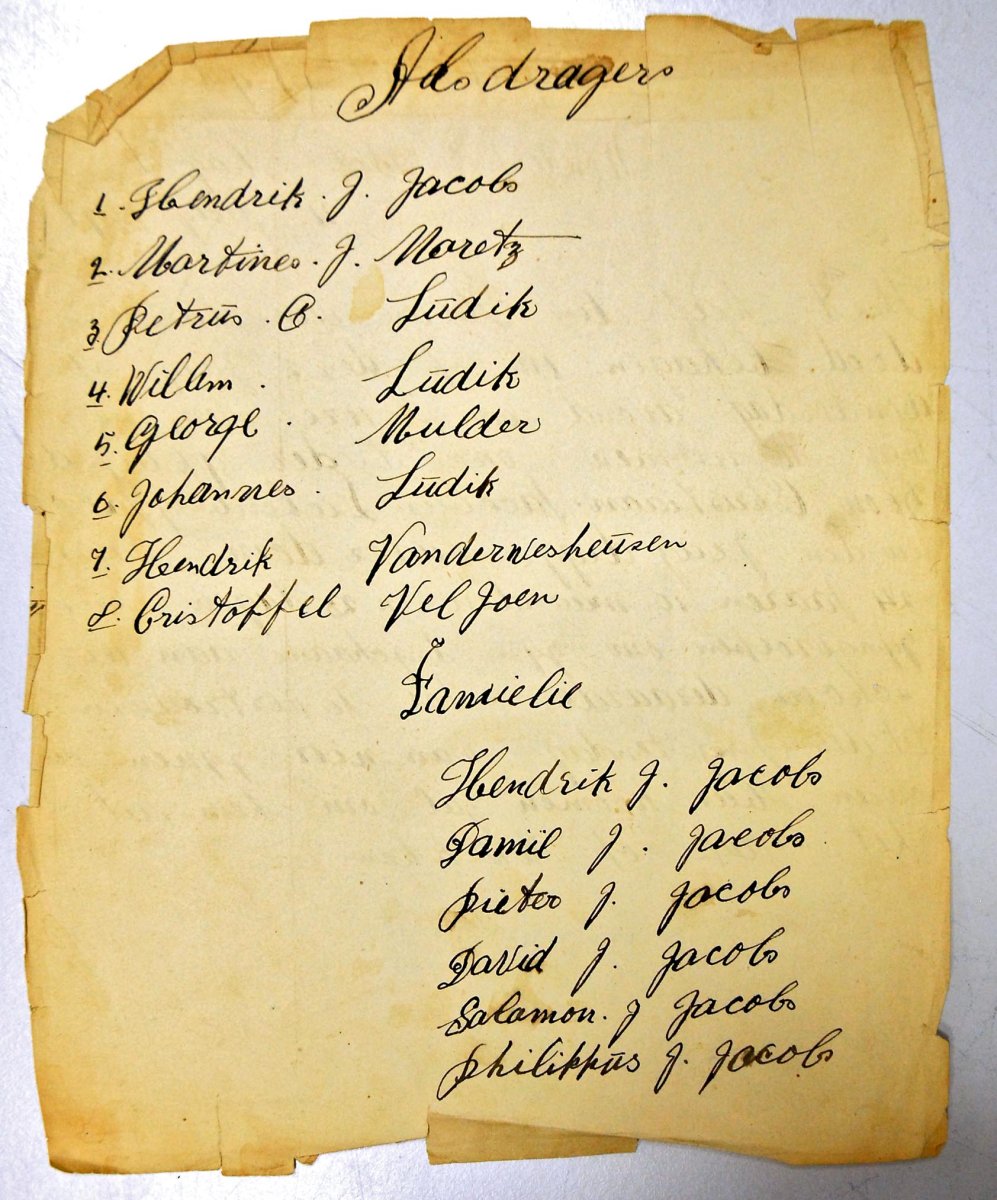 Als dragers
1. Hendrik. J. Jacobs
2. Martines. J. Moretz
3. Petrŭs. C. Lŭdik
4. Willem. Lŭdik
5. George. Mulder
6. Johannes. Lŭdik
7. Hendrik Vanderwesheŭsen
8. Cristoffel Vel Joen
Familie
Hendrik J. Jacobs
Daniël J. Jacobs
Pieter J. Jacobs
David J. Jacobs
Salamon. J Jacobs
Philippŭs J. Jacobs